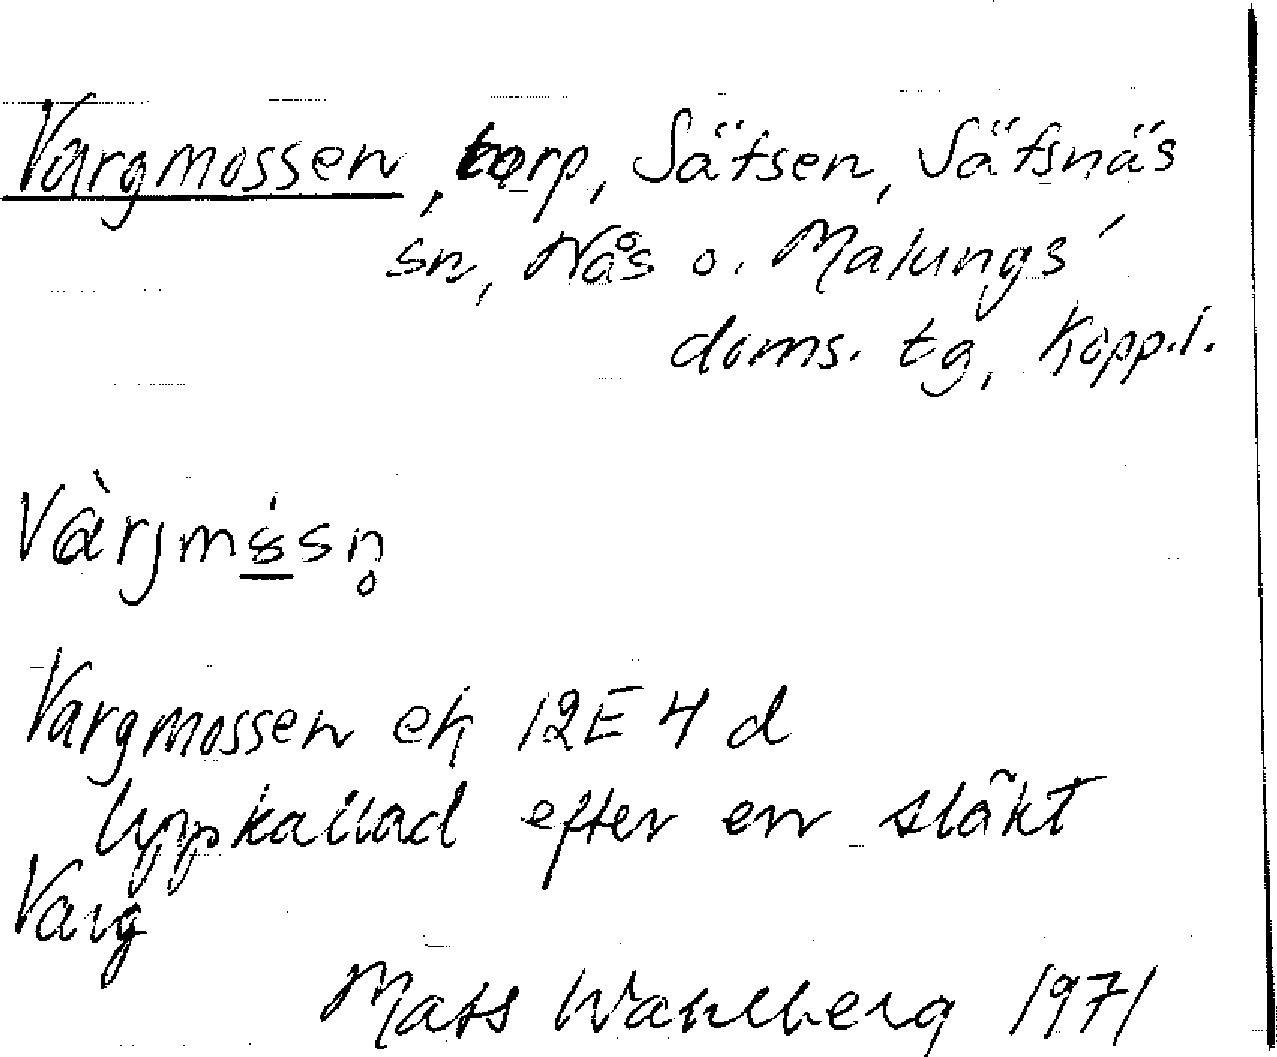 Vargmossen, torp, Sätsen, Säfsnäs
sn, Nås o. Malungs
doms. tg, Kopp.l.
Vargmossen ek 12E4d
Uppkallad efter en släkt
Varg
Mats Wahlberg 1971